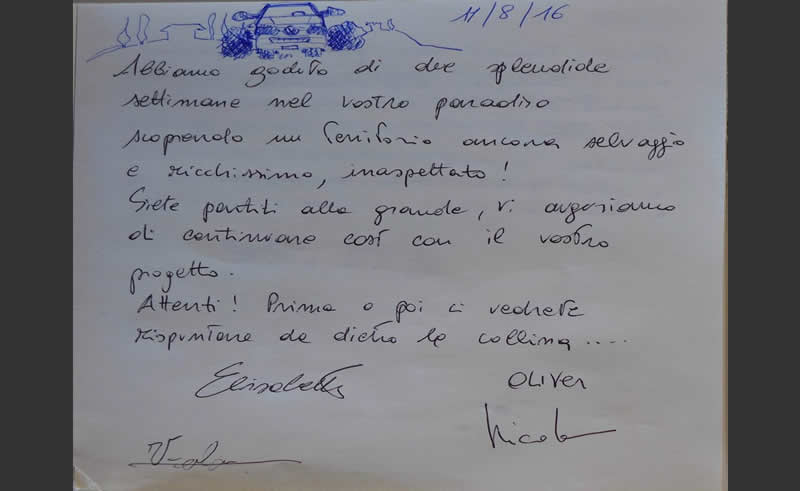 11/8/16
Abbiamo goduto di due splendide
settimane nel vostro paradiso
scoprendo un territorio ancora selvaggio
e ricchissimo, inaspettato!
Siete partiti alla grande, vi auguriamo
di continuare così con il vostro
progetto.
Attenti! Prima o poi ci vedrete
rispuntare da dietro la collina....
Elisabetta OLIVER
Nicola